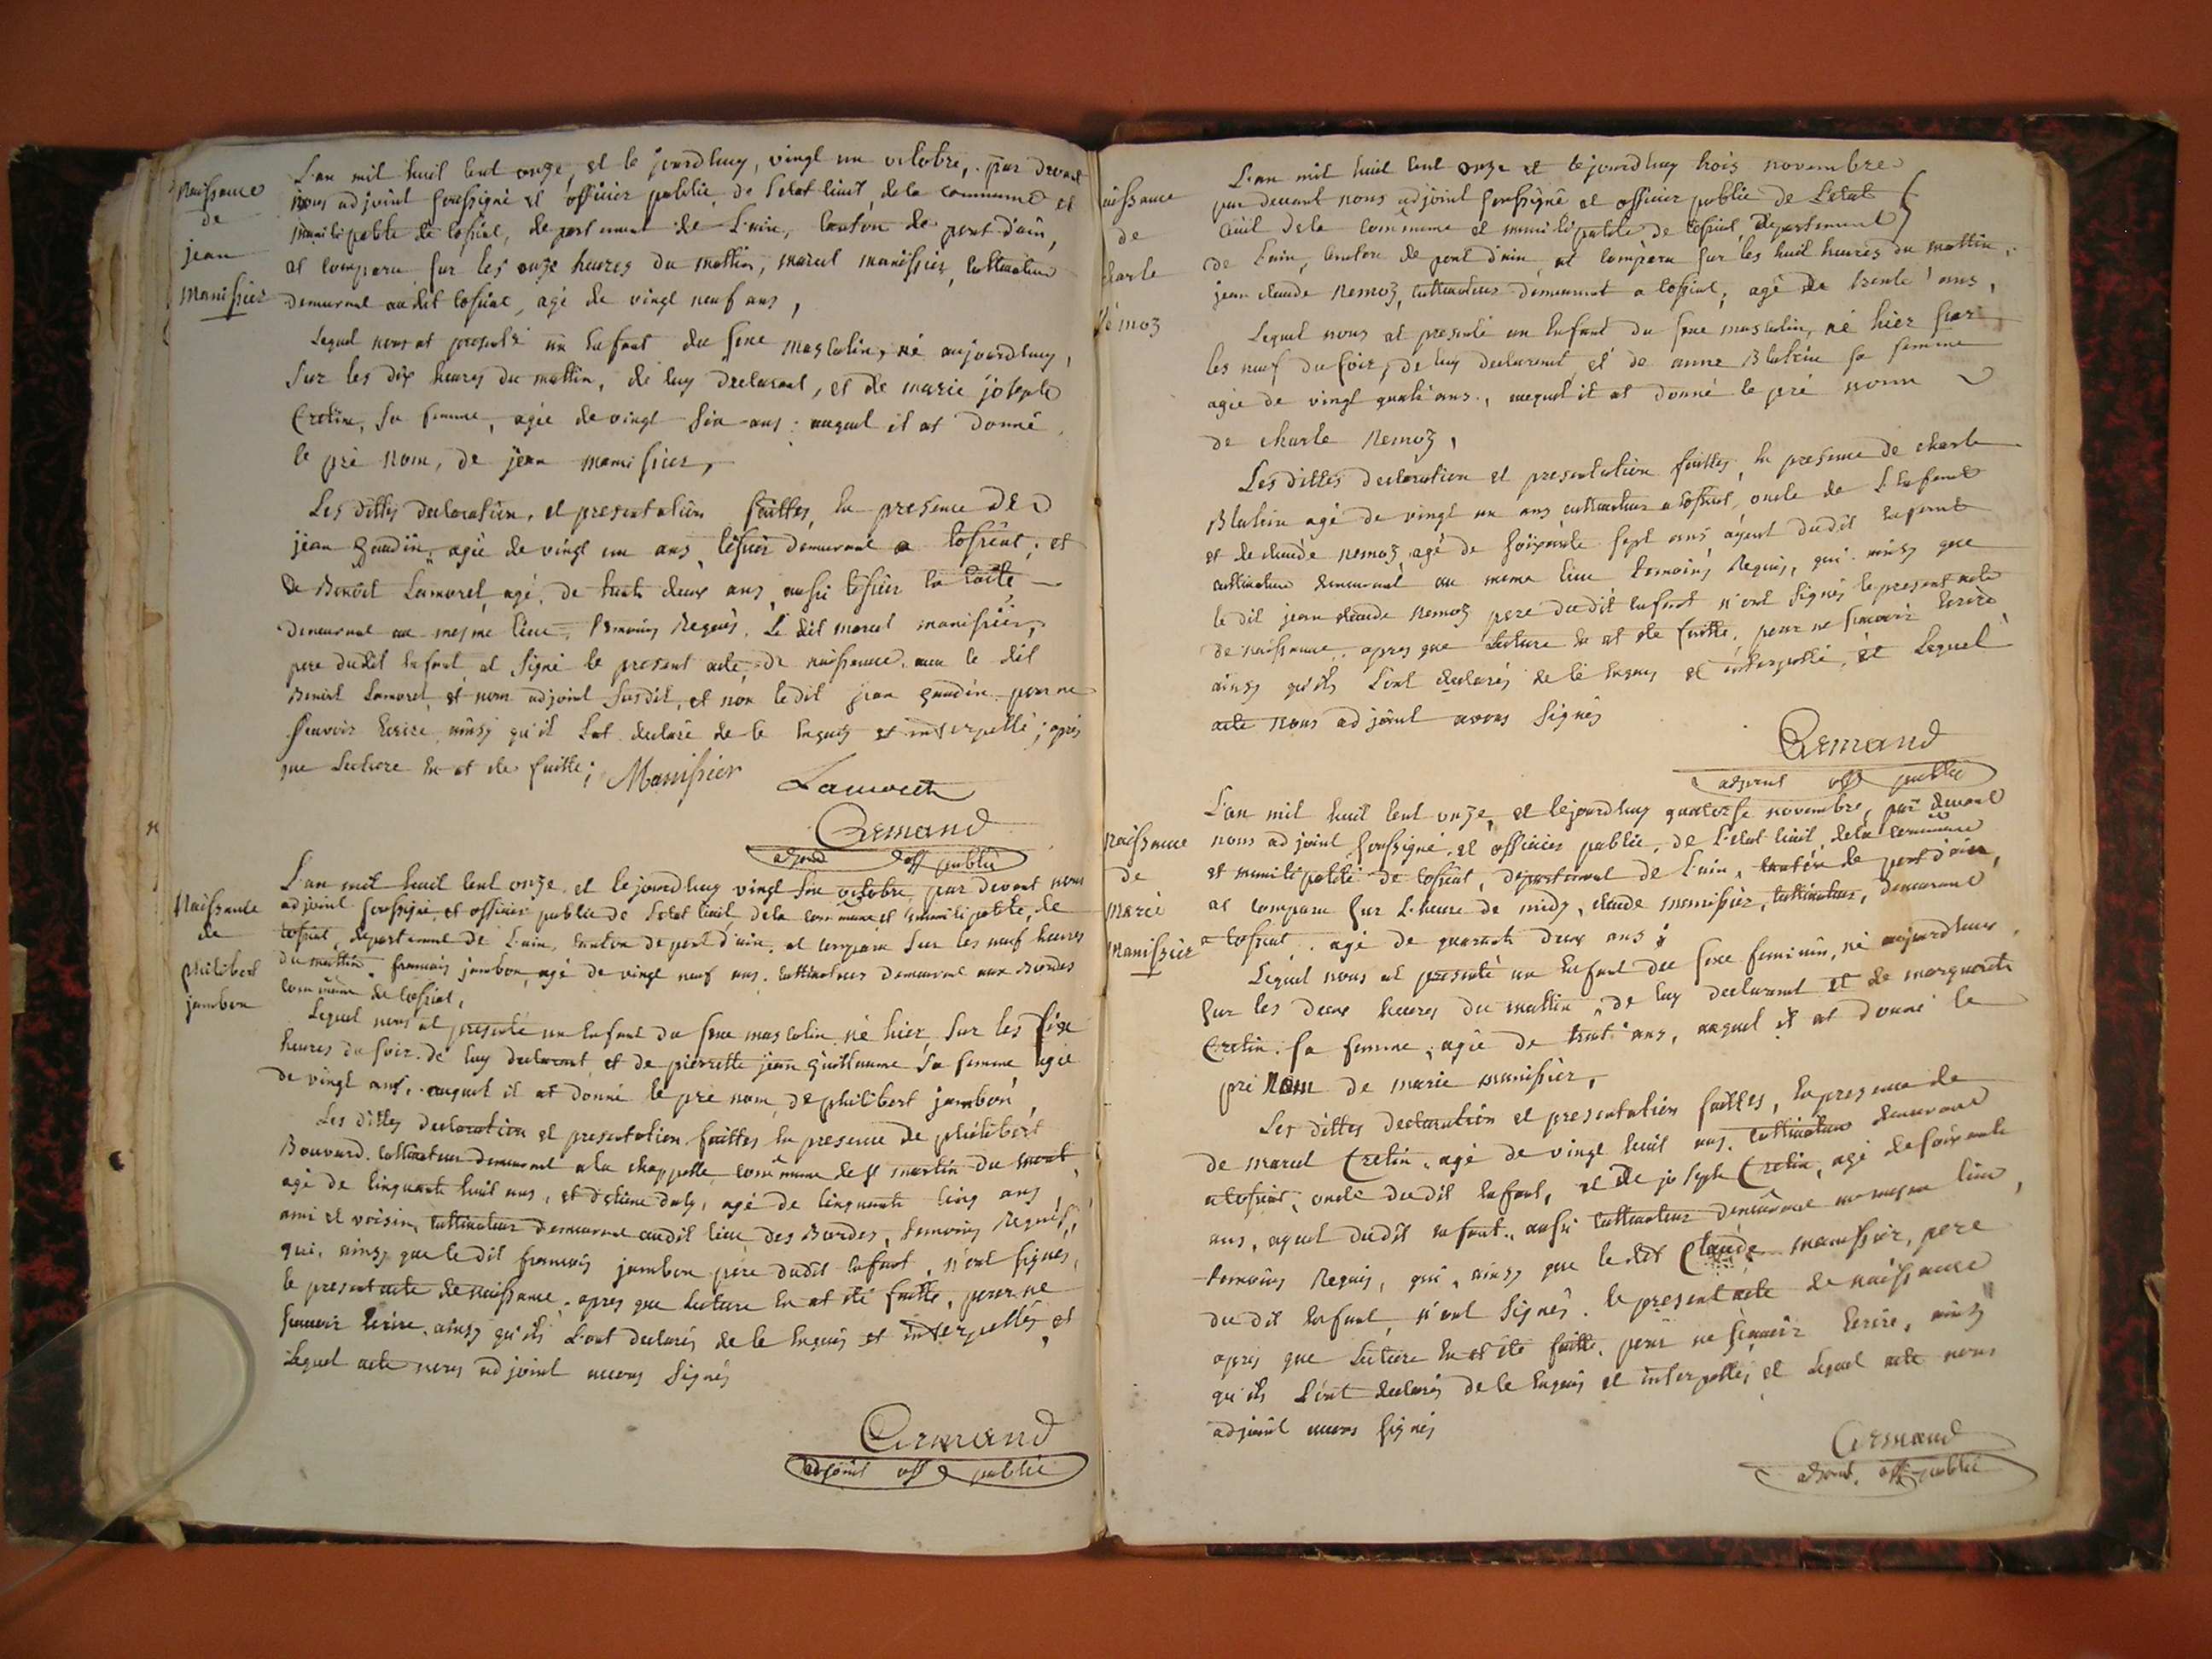 Naissance
de
jean
Manissier
L'an mil huit cent onze, et le jourdhuy, vingt un octobre, par devant
nous adjoint soussigné et officier public, de l'etat civil, de la commune et
municipalité de tossiat, departement de l'ain, canton de pont d'ain,
at comparu sur les onze heures du mattin, marcel manissier, cultivateur
demeurant audit tossiat, agé de vingt neuf ans,
Lequel nous at presenté un enfant du sexe masculin, né aujourdhuy,
sur les dix heures du mattin, de luy declarant, et de marie josephe
Cretin, sa femme, agée de vingt six ans: auquel il at donné
le pré nom, de jean manissier,
Les dittes declaration, et presentation faittes, en presence de
jean gaudin, agée de vingt un ans, demeurant a tossiat; et
de Benoit Lamoret, agé de trente deux ans, aussi
demeurant au mesme lieu, temoins Requis. Le dit marcel manissier,
pere dudit enfant, at signé le present acte, de naissance, avec le dit
Benoit Lamoret, et nous adjoint susdit, et non ledit jean gaudin pour ne
sçavoir Ecrire, ainsy qu'il l'at declaré de ce enquis et interpellé; après
que Lecture en at été faitte; Manissier
Lamoret
Armand
adjoint off public
Naissance
de
philibert
jambon
L'an mil huit cent onze, et le jourdhuy vingt six octobre, par devant nous
adjoint soussigné, et officier public de l'etat civil, de la commune et municipalité, de
tossiat, departement de l'ain, canton de pont d'ain, at comparu sur les neuf heures
du mattin, francois jambon, agé de vingt neuf ans, cultivateur demeurant aux Bordes
commune de tossiat,
Lequel nous at presenté un enfant du sexe masculin né hier, sur les six
heures du soir, de luy declarant, et de pierrette jean guillaume sa femme agée
de vingt ans, auquel il at donné le pré nom, de philibert jambon,
Les dittes declaration et presentation faittes en presence de philibert
Bouvard, cultivateur demeurant a la chappelle, commune de st martin du mont,
agé de cinquante huit ans, et detiene duty, agé de cinquante cinq ans,
ami et voisin, cultivateur demeurant audit lieu des Bordes, temoins Requis,
qui, ainsy que le dit francois jambon père dudit enfant, n'ont signés,
le present acte de naissance, apres que Lecture en at été faitte, pour ne
sçavoir Ecrire, ainsy qu'ils l'ont declarés de ce enquis et interpellés, et
Lequel acte nous adjoint avons signés
Armand
adjoint off public
aissance
de
charle
Nemoz
L'an mil huit cent onze et le jourdhuy trois novembre
par devant nous adjoint soussigné et officier public de L'etat
civil de la commune et municipalité de tossiat, departement
de l'ain, canton de pont d'ain, at comparu sur les huit heures du mattin,
jean claude Nemoz, cultivateur demeurant a tossiat, agé de trente ans,
Lequel nous at presenté un enfant du sexe masculin, né hier sur
les neuf du soir, de luy declarant, et de anne Blutein sa femme
agée de vingt quatre ans, auquel il at donné le pré nom
de charle Nemoz,
Les dittes declaration et presentation faittes, en presence de charle
Blutein agé de vingt un ans cultivateur a tossiat, oncle de L'enfant
et de claude nemoz agé de soixante sept ans ayeul dudit enfant
cultivateur demeurant au meme lieu temoins Requis, qui ainsy que
le dit jean claude Nemoz pere dudit enfant n'ont signés le present acte
de naissance, apres que Lecture en at été faitte, pour ne sçavoir Ecrire
ainsy qu'ils L'ont declarés de ce enquis et interpellé, et Lequel
acte nous adjoint avons signés
Armand
adjoint off public
Naissance
de
Marie
Manissier
L'an mil huit cent onze, et le jourdhuy quatorse novembre, par devant
nous adjoint soussigné, et officier public, de L'etat civil, de la commune
et municipalité de tossiat, departement de L'ain, canton de pont d'ain,
at comparu sur L'heure de midy, claude manissier, cultivateur, demeurant
a tossiat, agé de quarante deux ans;
Lequel nous at presenté un enfant du sexe feminin, né aujourdhuy,
sur les deux heures du mattin, de luy declarant et de marguerite
Cretin, sa femme, agée de trente ans, auquel il at donné le
pré Nom de marie manissier,
Les dittes declaration et presentation faittes, en presence de
de marcel Cretin, agé de vingt huit ans, cultivateur demeurant
a tossiat, oncle dudit enfant, et de joseph Cretin, agé de soixante
ans, ayeul dudit enfant, aussi cultivateur demeurant au mesme lieu,
temoins Requis, qui, ainsy que le dit Claude manissier, pere
du dit enfant, n'ont signés, le present acte de naissance
apres que Lecture en at été faitte, pour ne sçavoir Ecrire, ainsy
qu'ils L'ont declarés de ce enquis et interpellés, et Lequel acte nous
adjoint avons signés
Armand
adjoint off public